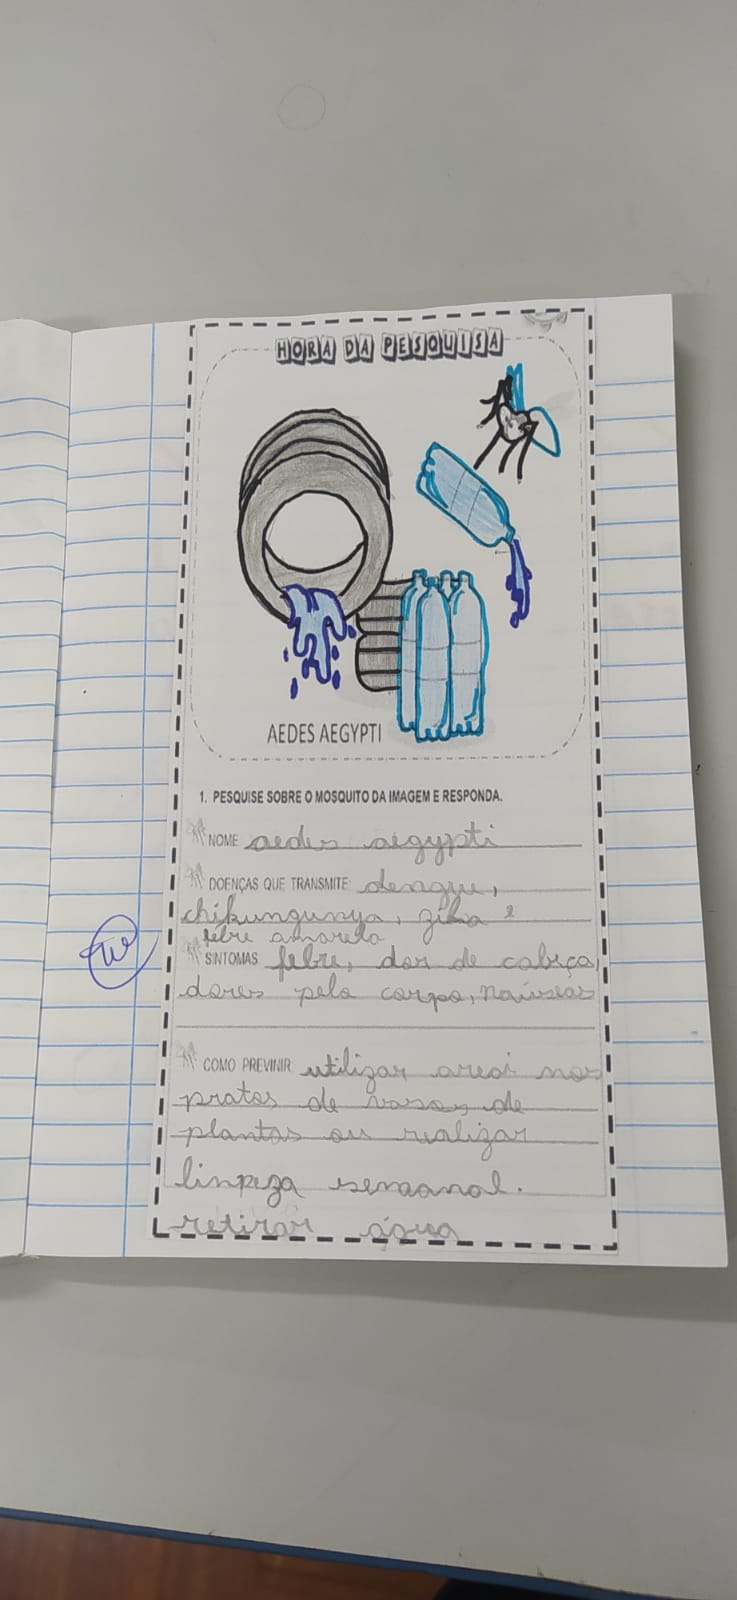 HORA DA PESQUISA
AEDES AEGYPTI
1. PESQUISE SOBRE O MOSQUITO DA IMAGEM E RESPONDA.
NOME aedes aegypti
DOENÇAS QUE TRANSMITE: dengue,
chikungunya, zika e
febre amarela
SINTOMAS febre, dor de cabeça,
dores pelo corpo, naúseas
COMO PREVINIR: utilizar areai nos
pratos de vasos, de
plantas ou realizar
limpeza semanal.
retirar água